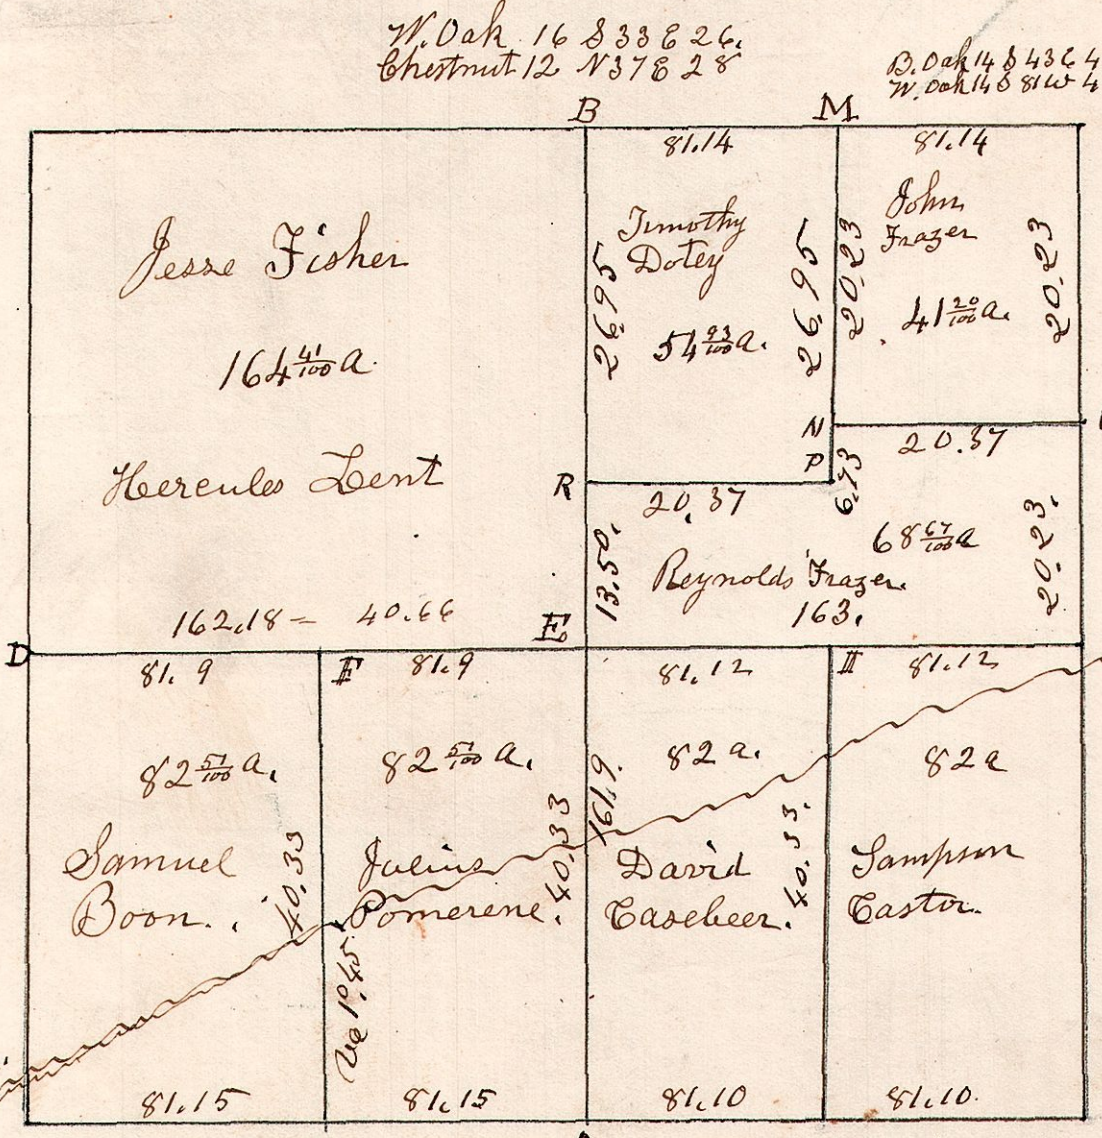 W. Oak 16 S 33 E 26.
Chestnut 12 N 37 E 28
B. Oak 14 S 43 E 4
W. Oak 14 S 81 W 4
B
M
81.14
81.14
Jesse Fisher
164 41/100 a.
Hercules Lent
162.18 = 40.66
Timothy
Dotey
54 93/100 a.
26.95
26.95
John
Frazer
41 20/100 a.
20.23
20.23
N
P
R
20.37
20.37
6.73
68 67/100 a
Reynolds Frazer.
163.
13.50.
20.23.
D
E
F
H
81.9
81.9
81.12
81.12
82 51/100 a.
82 51/100 a.
82 a.
82 a
Samuel
Boon.
40.33
Julius
Pomerene.
40.33
161.9.
David
Casebeer.
40.33.
Sampson
Castor.
Va 1°.45.
81.15
81.15
81.10
81.10.